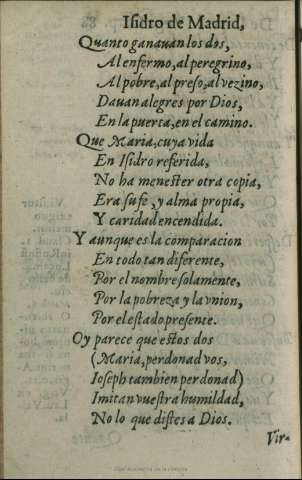 Isidro de Madrid,
Quanto ganauan los dos,
Al enfermo, al peregrino,
Al pobre, al preso, al vezino,
Dauan alegres por Dios,
En la puerta, en el camino.
Que Maria, cuya vida
En Isidro referida,
No ha menester otra copia,
Era su fè, y alma propia,
Y caridad encendida.
Y aunque es la comparacion
En todo tan diferente,
Por el nombre solamente,
Por la pobreza y la vnion,
Por el estado presente.
Oy parece que estos dos
(Maria, perdonad vos,
Ioseph tambien perdonad)
Imitan vuestra humildad,
No lo que distes a Dios.
Vir-